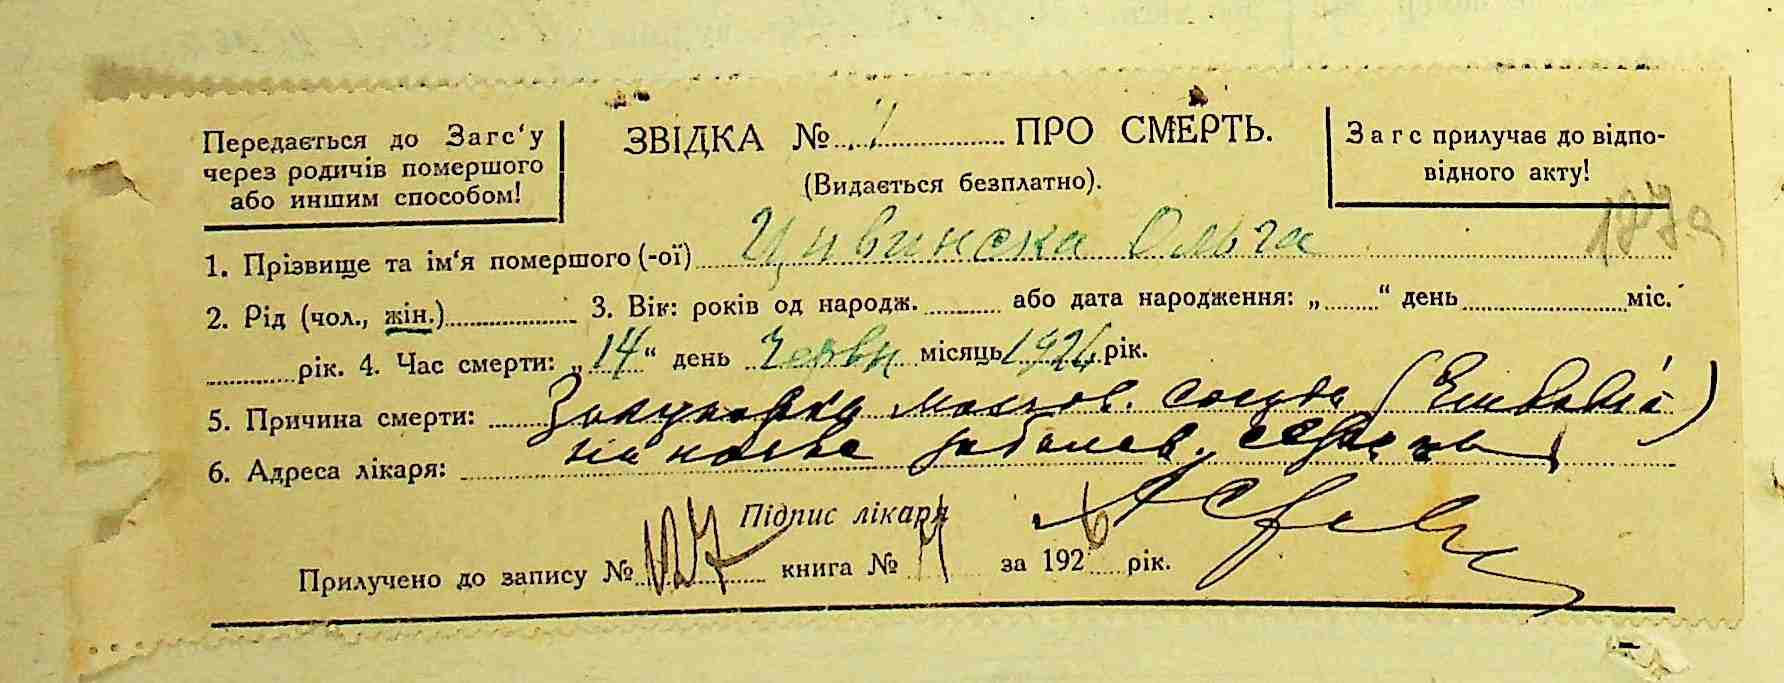 Передається до Загс‘у
через родичів помершого
або иншим способом!
ЗВІДКА № ПРО СМЕРТЬ.
(Видається безплатно).
Загс прилучає до відпо-
відного акту!
1. Прізвище та ім‘я помершого (-ої) Цивинска Ольга
2. Рід (чол., жін.) 3. Вік: років од народж. або дата народження: „ “ день міс.
рік. 4. Час смерти: „14“ день Червн місяць 1926 рік.
5. Причина смерти: Закупорка мозгов. сосуда (Эмболія)
6. Адреса лікаря: на почве заболев. сердца
Підпис лікаря
Прилучено до запису № 127 книга № за 1926 рік.